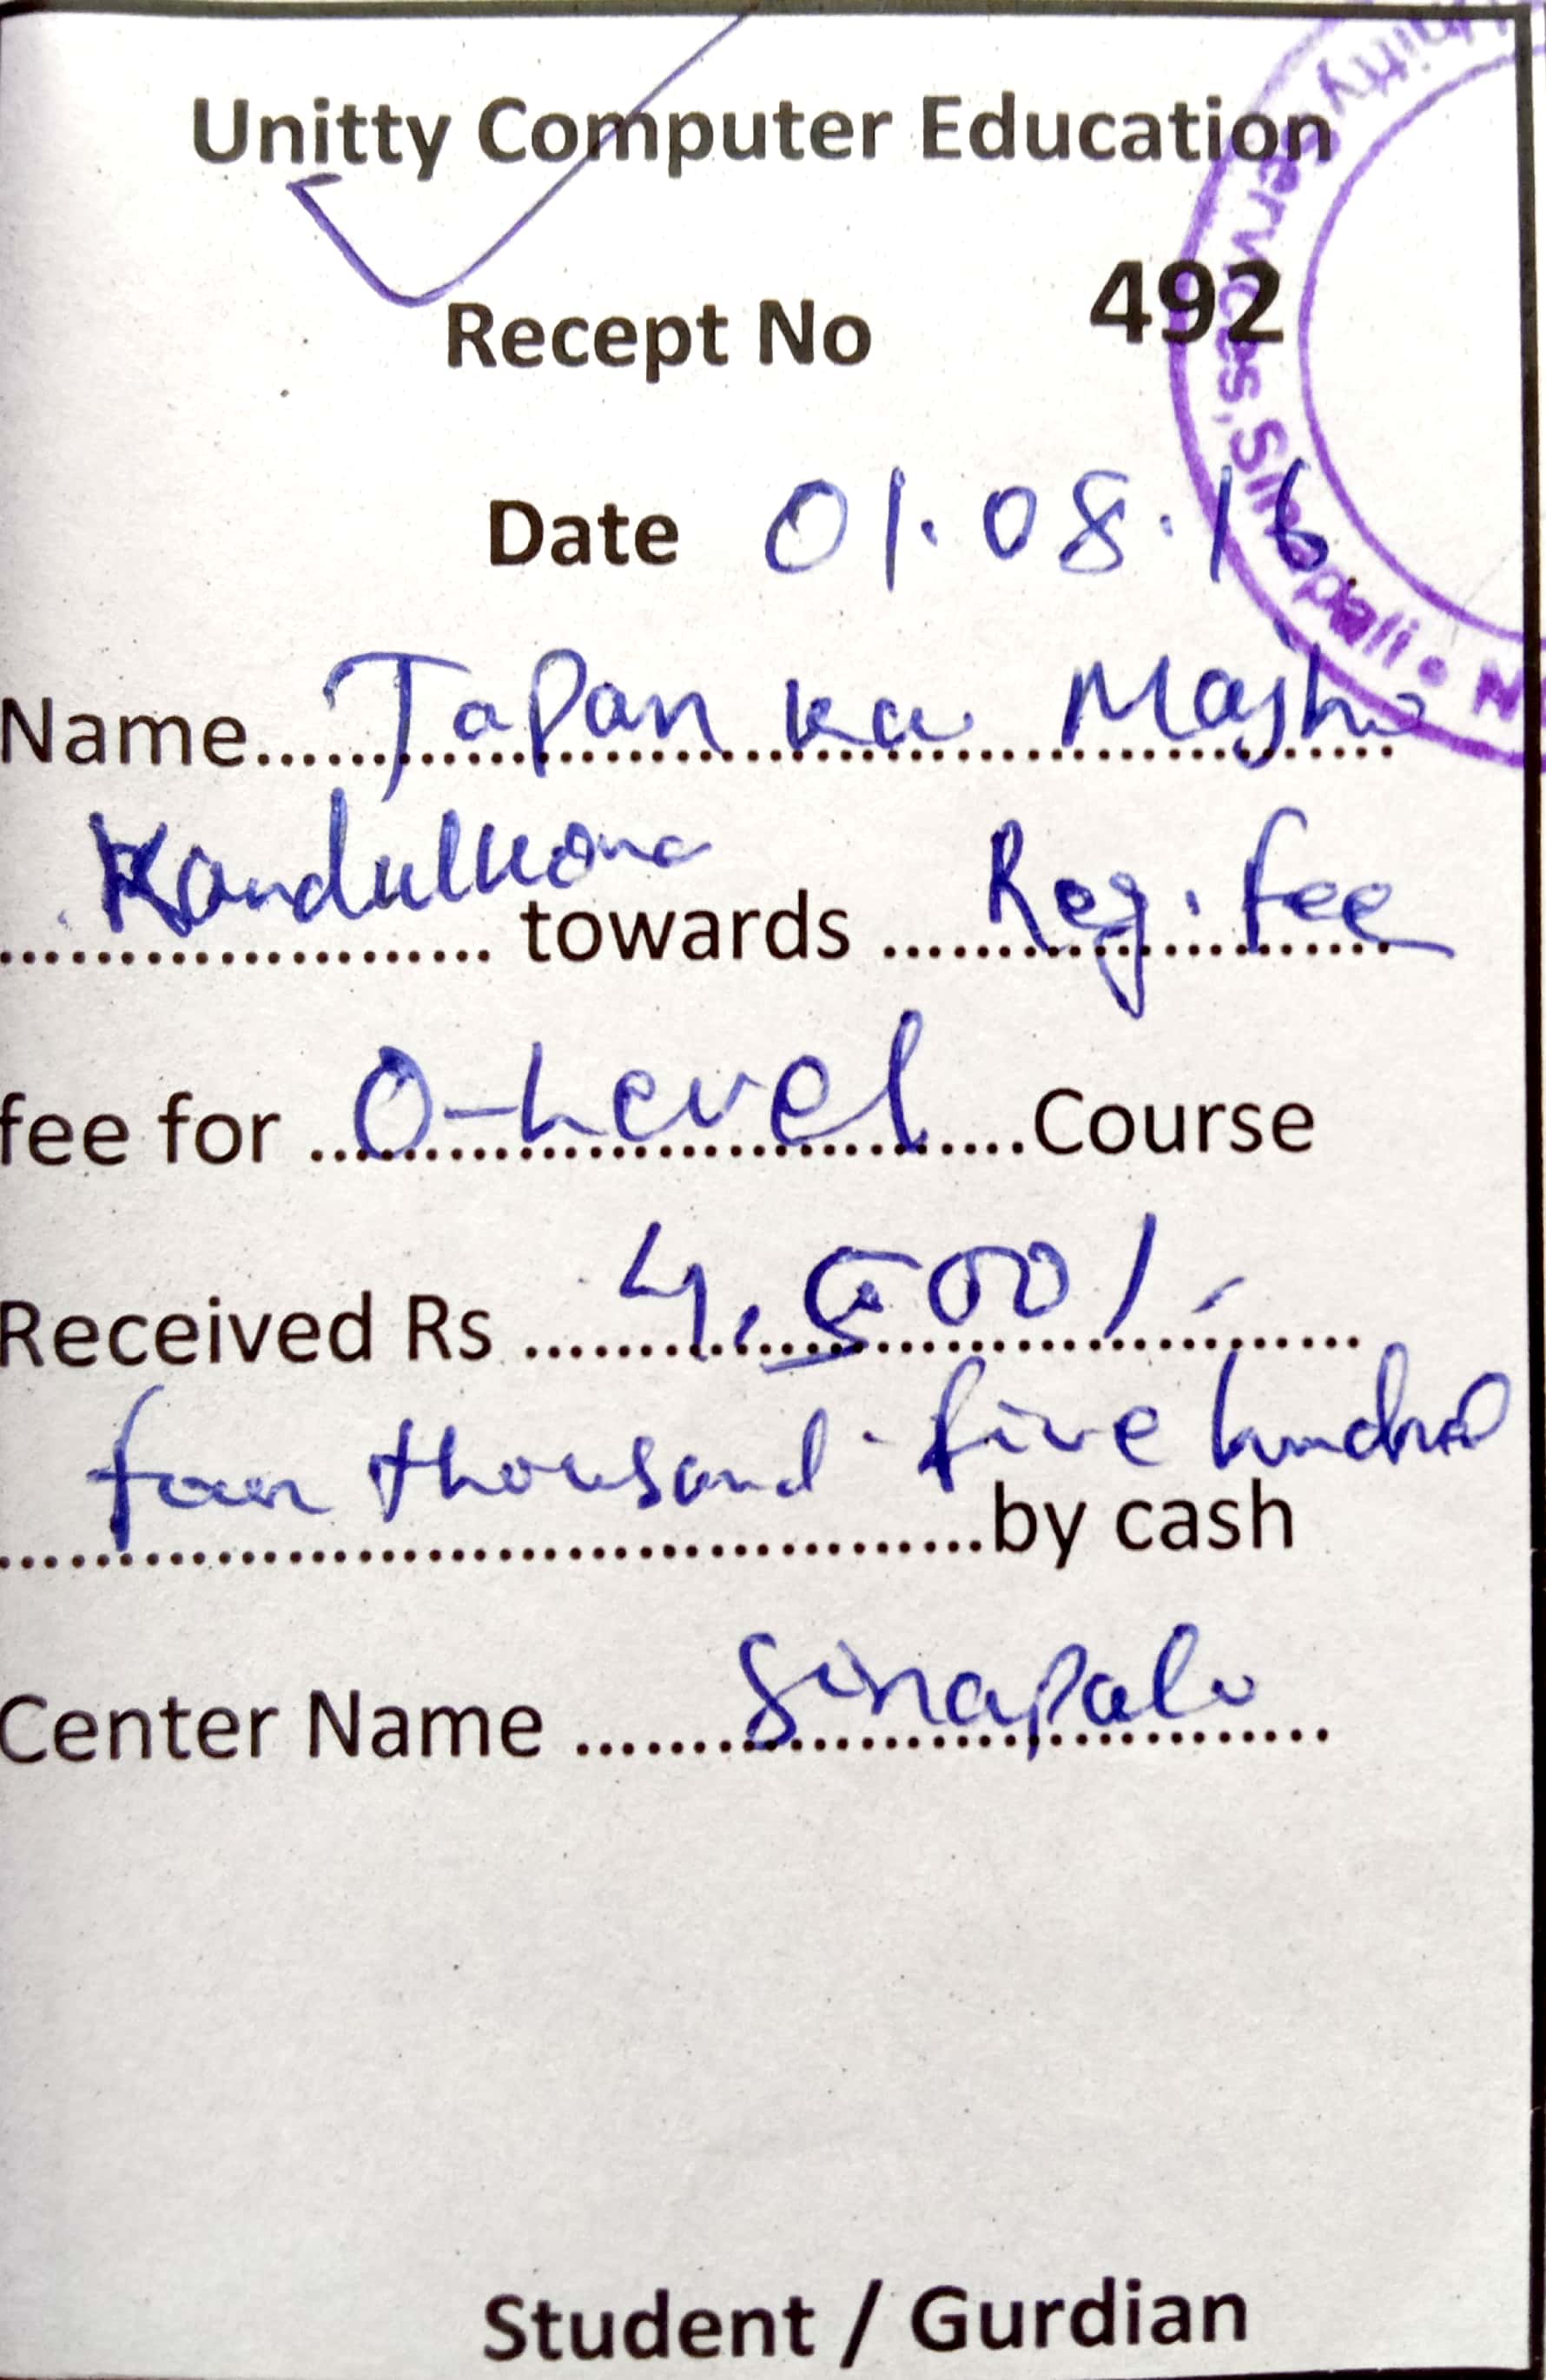 Unitty Computer Education
Recept No 492
Date 01.08.16
Name Tapan ku Majhi
Kandulkona towards Reg. fee
fee for O-Level Course
Received Rs 4,500/-
four thousand five hundred
by cash
Center Name Sinapali
Student / Gurdian
Unitty Services, Sinapali